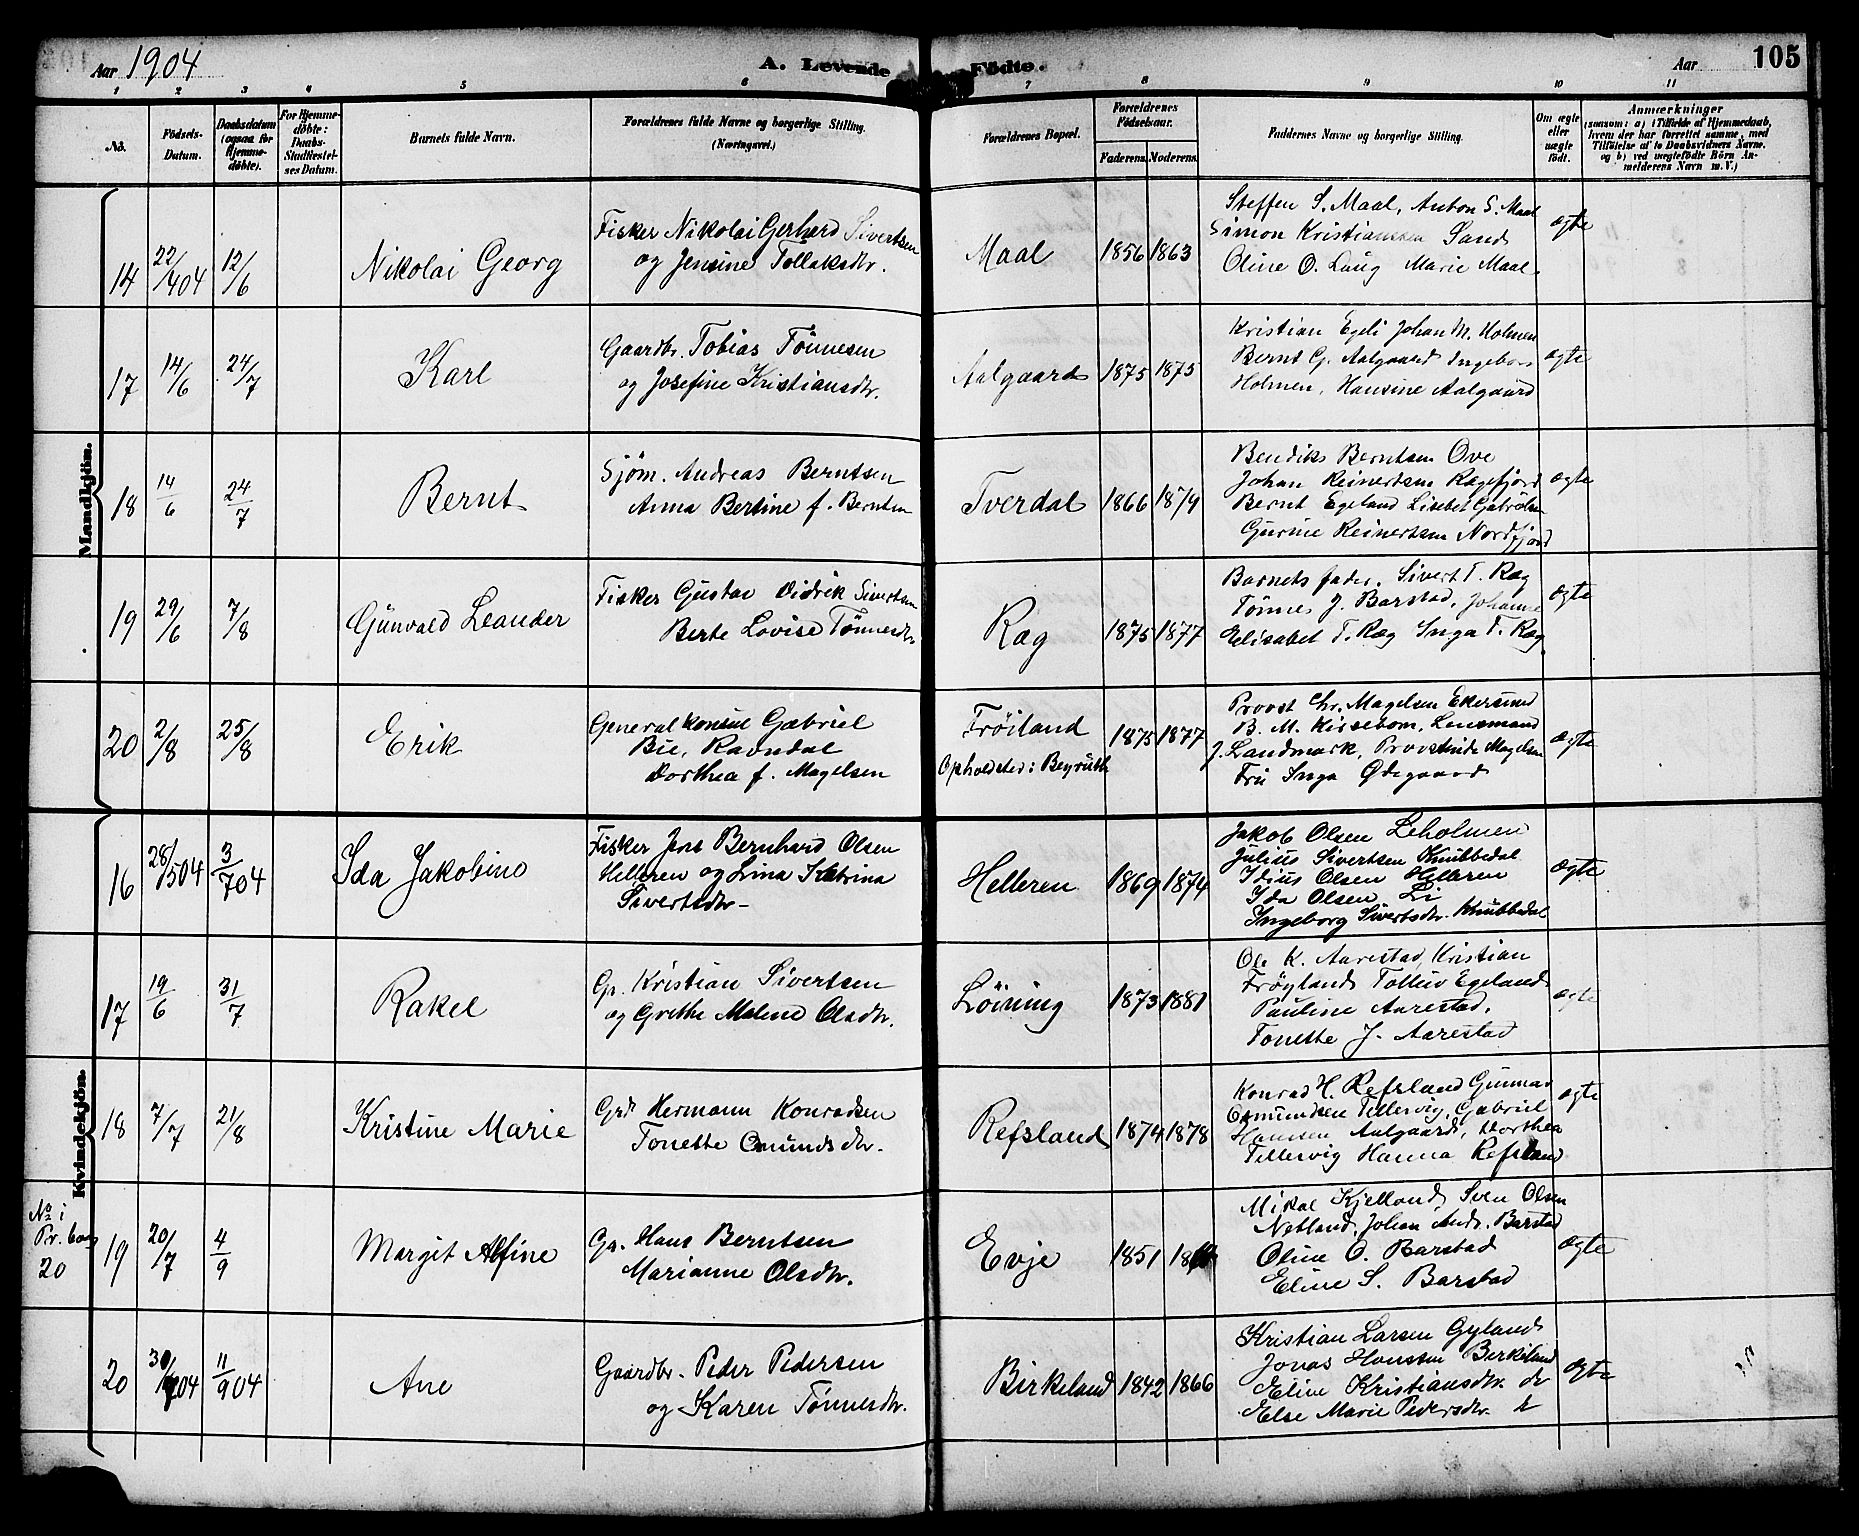 Aar 1904
A. Levende Fødte.
Aar
105
1 2 3 4 5 6 7 8 9 10 11
No.
Fødsels-Datum.
Daabsdatum (ogsaa for Hjemmedøbte).
For Hjemmedøbte: Daabs-Stadfæstelses Datum.
Barnets fulde Navn.
Forældrenes fulde Navne og borgerlige Stilling.
(Næringsvei.)
Forældrenes Bopæl.
Forældrenes Fødselsaar.
Faderens. Moderens.
Faddernes Navne og borgerlige Stilling.
Om ægte eller uægte født.
Anmærkninger
(saasom: a) i Tilfælde af Hjemmedaab, hvem der har forrettet samme, med Tilføielse af to Daabsvidners Navne. og b) ved uægtefødte Børn Anmelderens Navn m. V.)
Mandkjøn.
14 22/4 04 12/6 Nikolai Georg
Fisker Nikolai Gerhard Sivertsen
og Jensine Tollaksdtr.
Maal 1856 1863
Steffen S. Maal, Anton S. Maal
Simon Kristiansen Sand
Oline O. Laug Marie Maal.
ægte
17 14/6 24/7 Karl
Gaardbr. Tobias Tønnesen
og Josefine Kristiansdtr.
Aalgaard 1875 1875
Kristian Egeli Johan M. Holmen
Bernt G. Aalgaard Ingeborg
Holmen, Hansine Aalgaard
ægte
18 14/6 24/7 Bernt
Sjøm. Andreas Berntsen
Anna Bertine f. Berntsen
Tverdal 1866 1879
Bendiks Berntsen Ove
Johan Reinertsen Rægefjord
Bernt Egeland Lisebet Gabrielsen
Gurine Reinertsen Nordfjord
ægte
19 29/6 7/8 Gunvald Leander
Fisker Gustav Didrik Sivertsen
Berte Lovise Tønnesdtr.
Ræg 1875 1877
Barnets fader, Sivert T. Ræg
Tønnes J. Barstad, Johanne
Elisabet T. Ræg Inga T. Ræg.
ægte
20 2/8 25/8 Erik
Generalkonsul Gabriel
Bie, Ravndal
Dorthea f. Magelsen
Frøiland
Opholdsted: Beyruth
1875 1877
Provst Chr. Magelsen Ekersund
B. M. Kirsebom, Lensmand
J. Landmark, Provstinde Magelsen
Fru Inga Ødegaard
ægte
Kvindekjøn.
16 28/5 04 3/7 04 Ida Jakobine
Fisker Jens Bernhard Olsen
Helleren og Lina Katrina
Sivertsdtr-
Helleren 1869 1874
Jakob Olsen Leholmen
Julius Sivertsen Knubbedal
Idius Olsen Helleren
Ida Olsen Li
Ingeborg Sivertsdtr. Knubbedal
ægte
17 19/6 31/7 Rakel
Gr. Kristian Sivertsen
og Grethe Malene Olsdtr.
Løining 1873 1881
Ole K. Aarestad, Kristian
Frøyland Tolleiv Egeland
Pauline Aarestad,
Tonette J. Aarestad
ægte
18 7/7 21/8 Kristine Marie
Grd. Hermann Konradsen
Tonette Omundsdtr.
Refsland 1874 1878
Konrad H. Refsland Gunnar
Osmundsen Tellesvig, Gabriel
Hansen Aalgaard, Dorthea
Tellesvig Hanna Refsland
ægte
No i
Pr. bog
20
19 20/7 4/9 Margit Alfine
Gr. Hans Berntsen
Marianne Olsdtr.
Evje 1851
Mikal Kjelland, Sven Olsen
Netland, Johan Andr. Barstad
Oline O. Barstad
Eline S. Barstad
ægte
20 11/9 04 Ane
Gaardbr. Peder Pedersen
og Karen Tønnesdtr.
Birkeland 1842 1866
Kristian Larsen Gyland
Jonas Hansen Birkeland
Eline Kristiansdtr. do
Else Marie Pedersdtr.
ægte